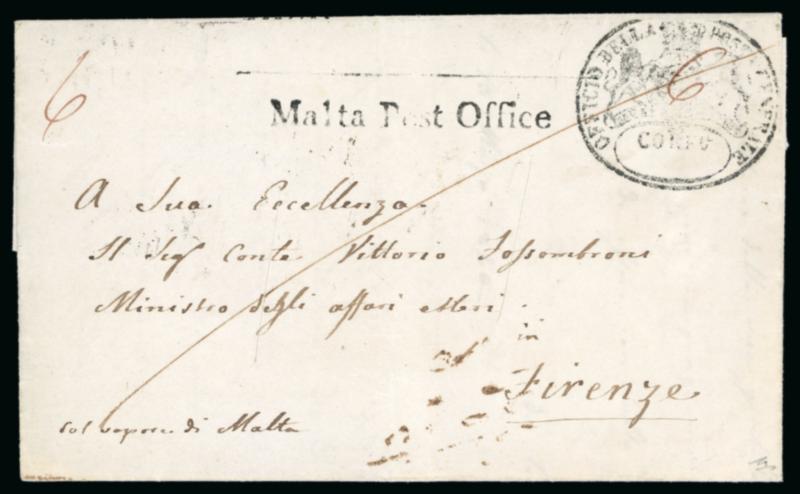 6
Malta Post Office
OFFICIO DELLA POSTA GENERALE
6
CORFU
A Sua Eccellenza
Il Sigr Conte Vittorio Fossombroni
Ministro degli affari esteri
in
Firenze
col vapore di Malta